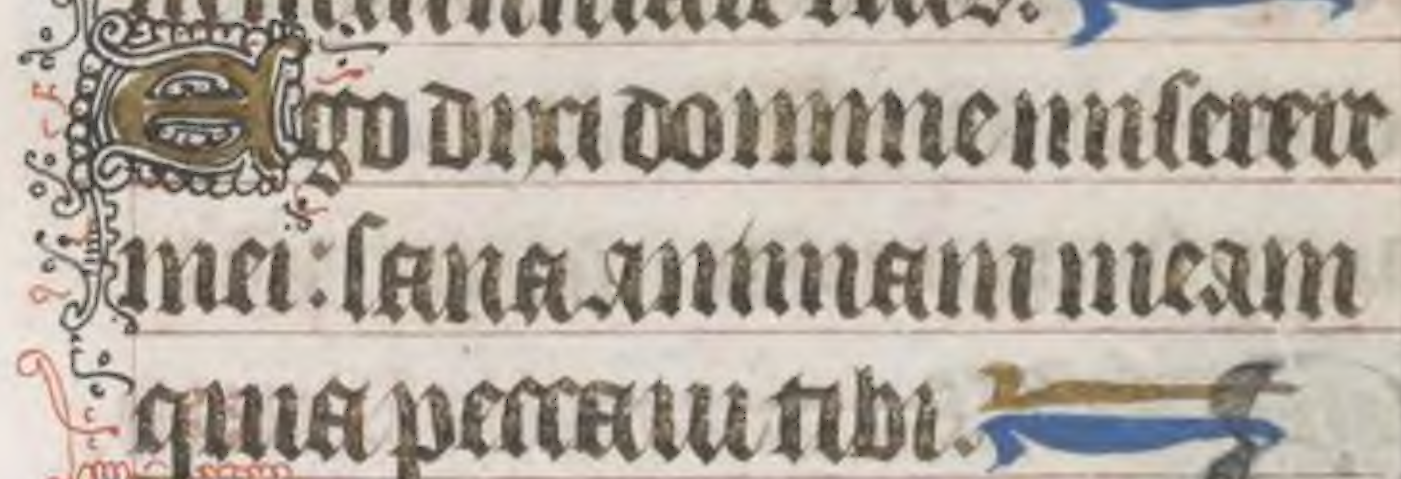 Ego dixi domine miserere
mei: sana animam meam
quia peccaui tibi.